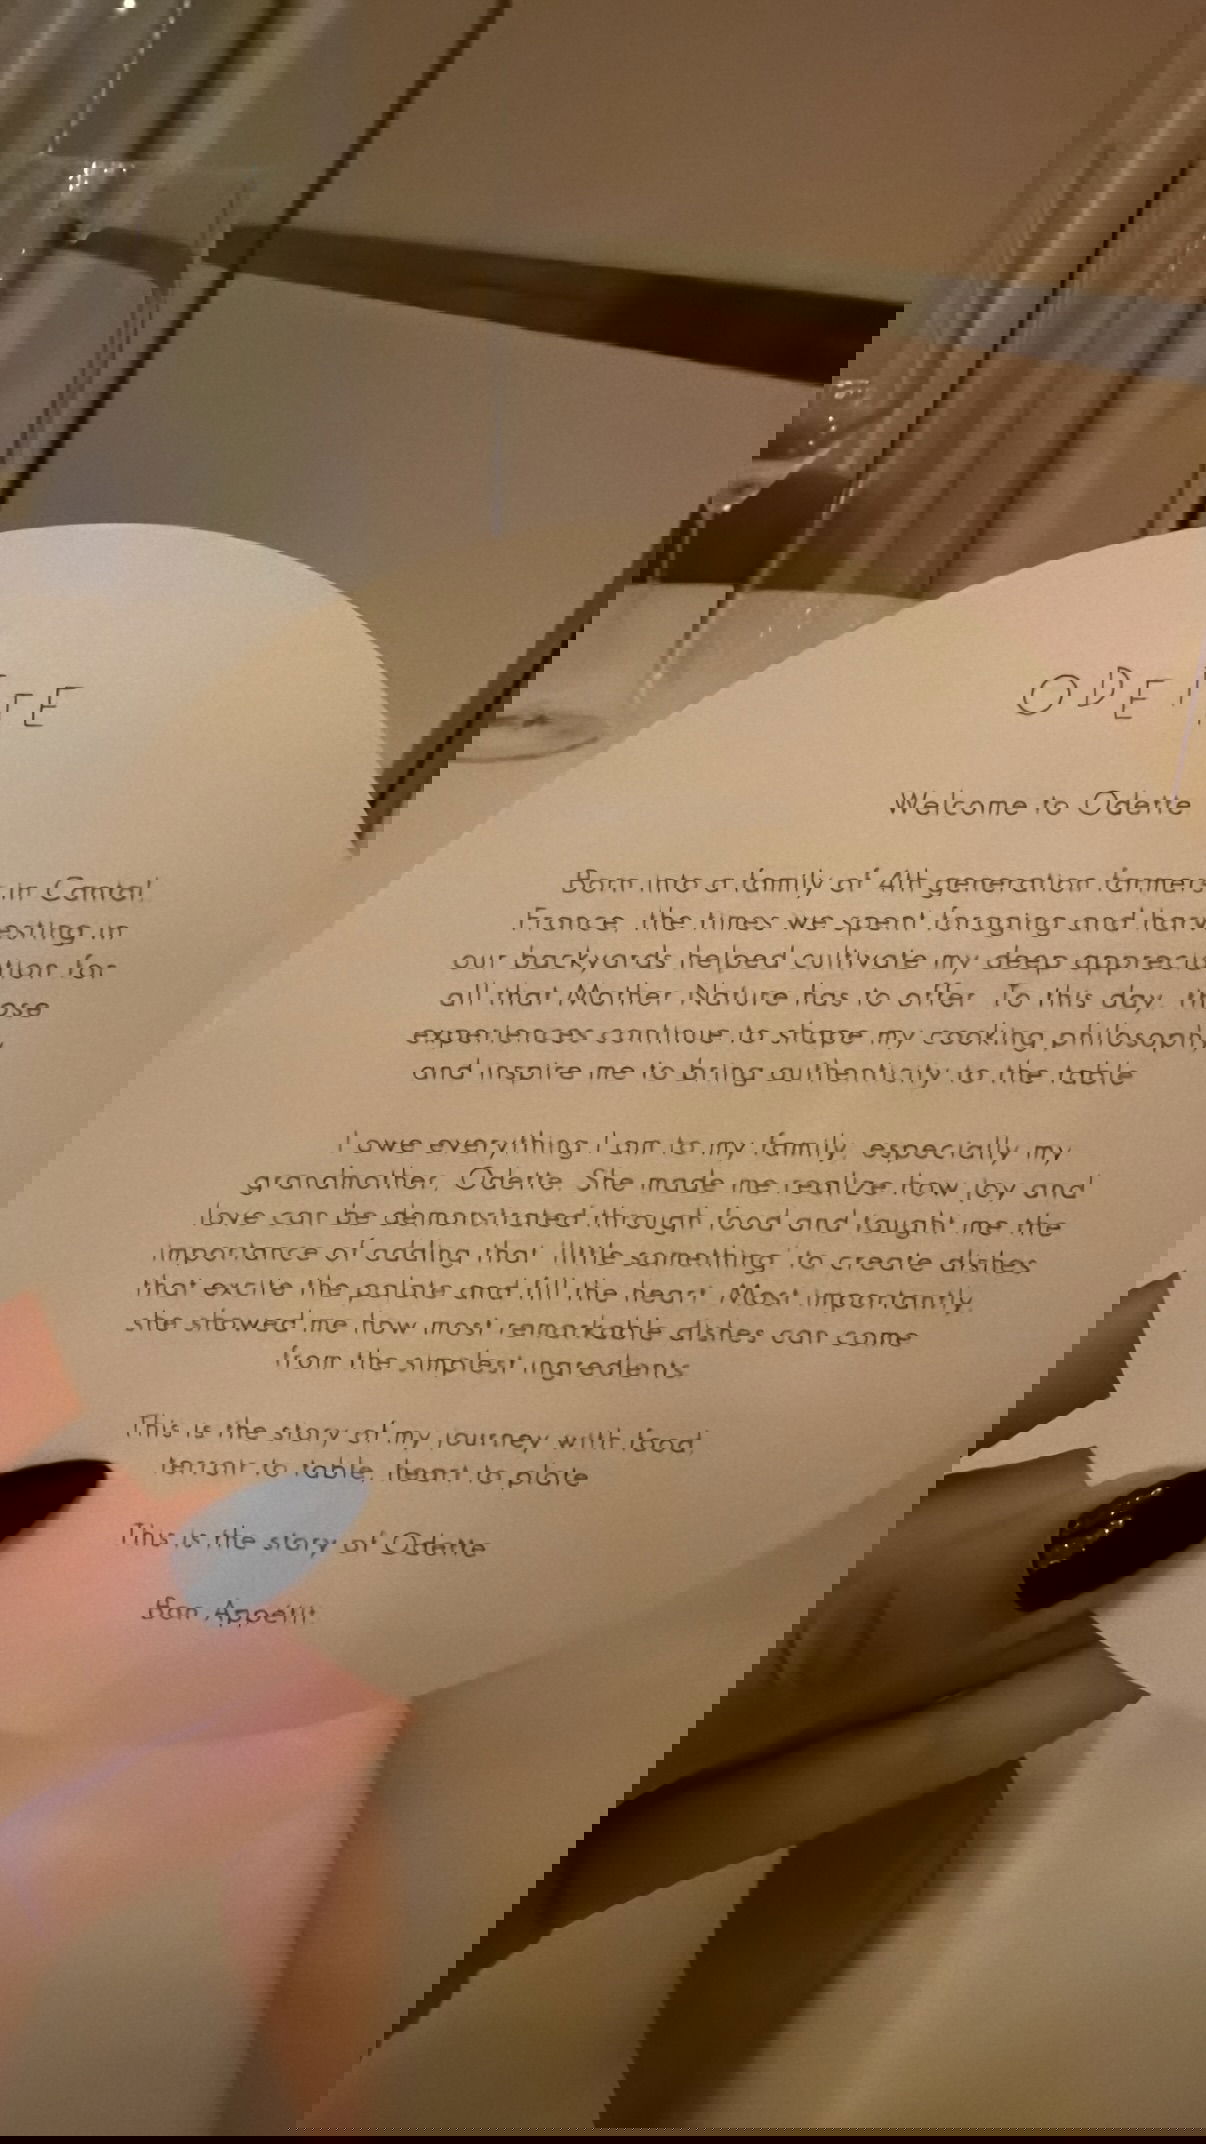 ODET
TE
Welcome to Odette
Born into a family of 4th generation farmers
in Cantal,
France, the times we spent foraging and harv
esting in
our backyards helped cultivate my deep apprecia
tion for
all that Mother Nature has to offer. To this day, th
ose
experiences continue to shape my cooking philosophy
and inspire me to bring authenticity to the table.
I owe everything I am to my family, especially my
grandmother, Odette. She made me realize how joy and
love can be demonstrated through food and taught me the
importance of adding that 'little something' to create dishes
that excite the palate and fill the heart. Most importantly,
she showed me how most remarkable dishes can come
from the simplest ingredients.
This is the story of my journey with food,
terroir to table, heart to plate.
This is the story of Odette.
Bon Appétit.